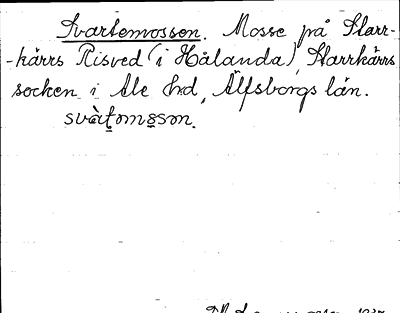 Svartemossen. Mosse på Starr-
-kärrs Risved (i Hålanda), Starrkärrs
socken i Ale hd, Älfsborgs län.
svàt̲om̥o̲son.